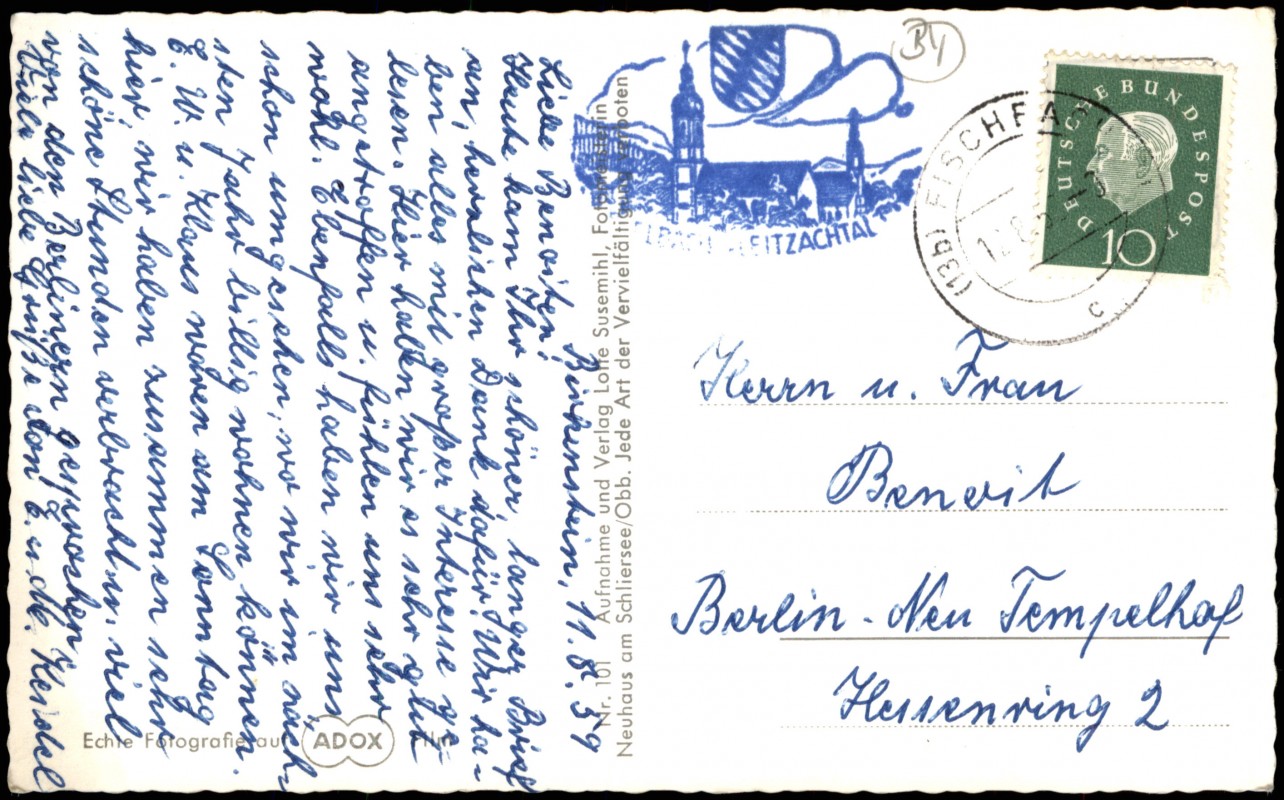 Birkenstein, 11.8.59
Liebe Benoiten!
Heute kam Ihr schöner, langer Brief
an, herzlichen Dank dafür! Wir ha-
ben alles mit großer Interesse ge-
lesen. Hier haben wir es sehr gut
angetroffen u. fühlen uns sehr
wohl. Ebenfalls haben wir uns
schon umgesehen, wo wir im näch-
sten Jahr billig wohnen können.
E. W. u. Klaus waren am Sonntag
hier, wir haben zusammen sehr
schöne Stunden verbracht u. viel
von den Berlinern gesprochen.
Viele liebe Grüße von E. u. M.
Nr. 101 Aufnahme und Verlag Lotte Susemihl, Fotomeisterin
Neuhaus am Schliersee/Obb. Jede Art der Vervielfältigung verboten
Echte Fotografie auf ADOX Film
BY
ELBACH LEITZACHTAL
(13b) FISCHBA
c
DEUTSCHE BUNDESPOST
10
Herrn u. Frau
Benoit
Berlin-Neu Tempelhof
Hessenring 2